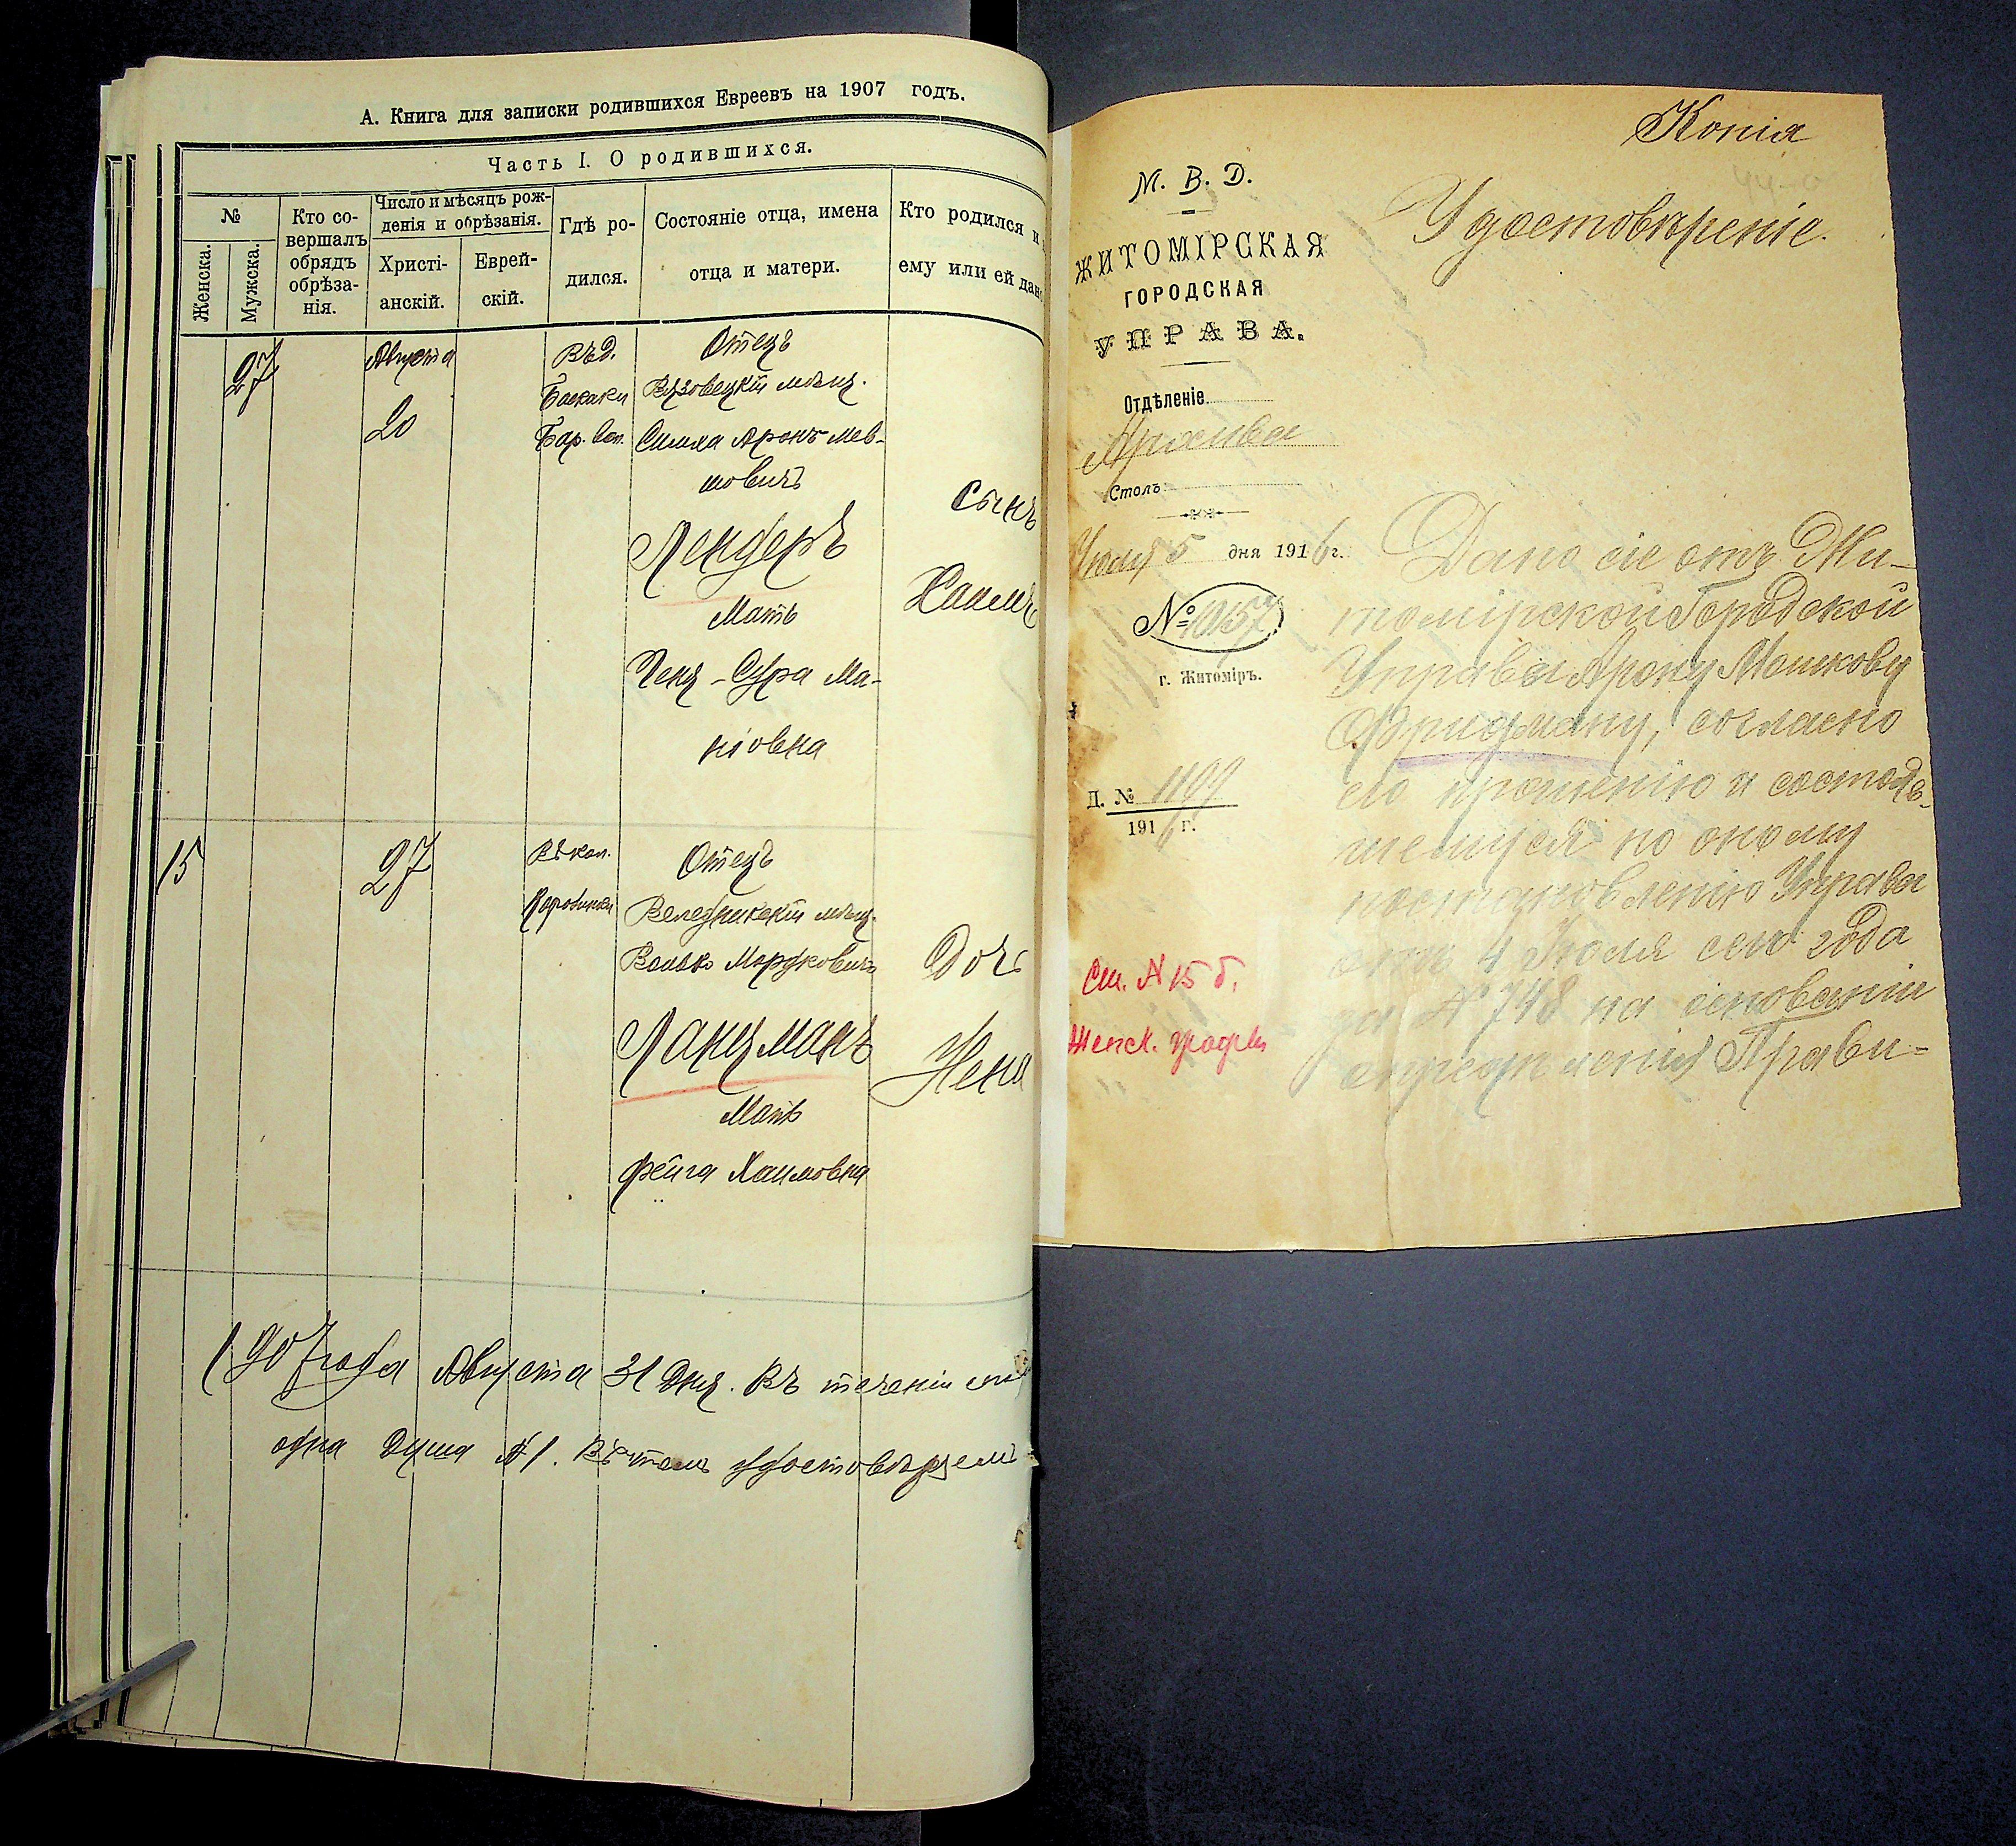 А. Книга для записки родившихся Евреевъ на 1907 годъ.
Часть I. О родившихся.
№
Женска.
Мужска.
Кто со-
вершалъ
обрядъ
обрѣза-
нія.
Число и мѣсяцъ рож-
денія и обрѣзанія.
Христі-
анскій.
Еврей-
скій.
Гдѣ ро-
дился.
Состояніе отца, имена
отца и матери.
Кто родился и
ему или ей дано
27
Августа
20
Въ д.
Баскаки
Бар. вол.
Отецъ
Вязовецкій мѣщ.
Симха Аронъ Мев-
шовичъ
Лендеръ
Мать
Ченя-Сура Ма-
ніовна
сынъ
Хаимъ
15
27
Въ кол.
Отецъ
Веледникскій мѣщ.
Волько Мордковичъ
Ланцманъ
Мать
Фейга Хаимовна
Дочь
Хена
1907 года Августа 31 дня. Въ теченіи
одна душа №1. Въ томъ удостовѣряемъ
Копія
М. В. Д.
Удостовѣреніе.
ЖИТОМІРСКАЯ
ГОРОДСКАЯ
УПРАВА.
Отдѣленіе
Архива
Столъ
Іюля 5 дня 1916 г.
№ 10157
г. Житоміръ.
Д. № 1199
1916 г.
Ст. № 15 б.
Женск. графы
Дано сіе отъ Жи-
томірской Городской
Управы Арону Мошкову
Фридману, согласно
его прошенію и состояв-
шемуся по оному
постановленію Управы
отъ 4 Іюля сего года
за № 748 на основаніи
опредѣленія Прави-